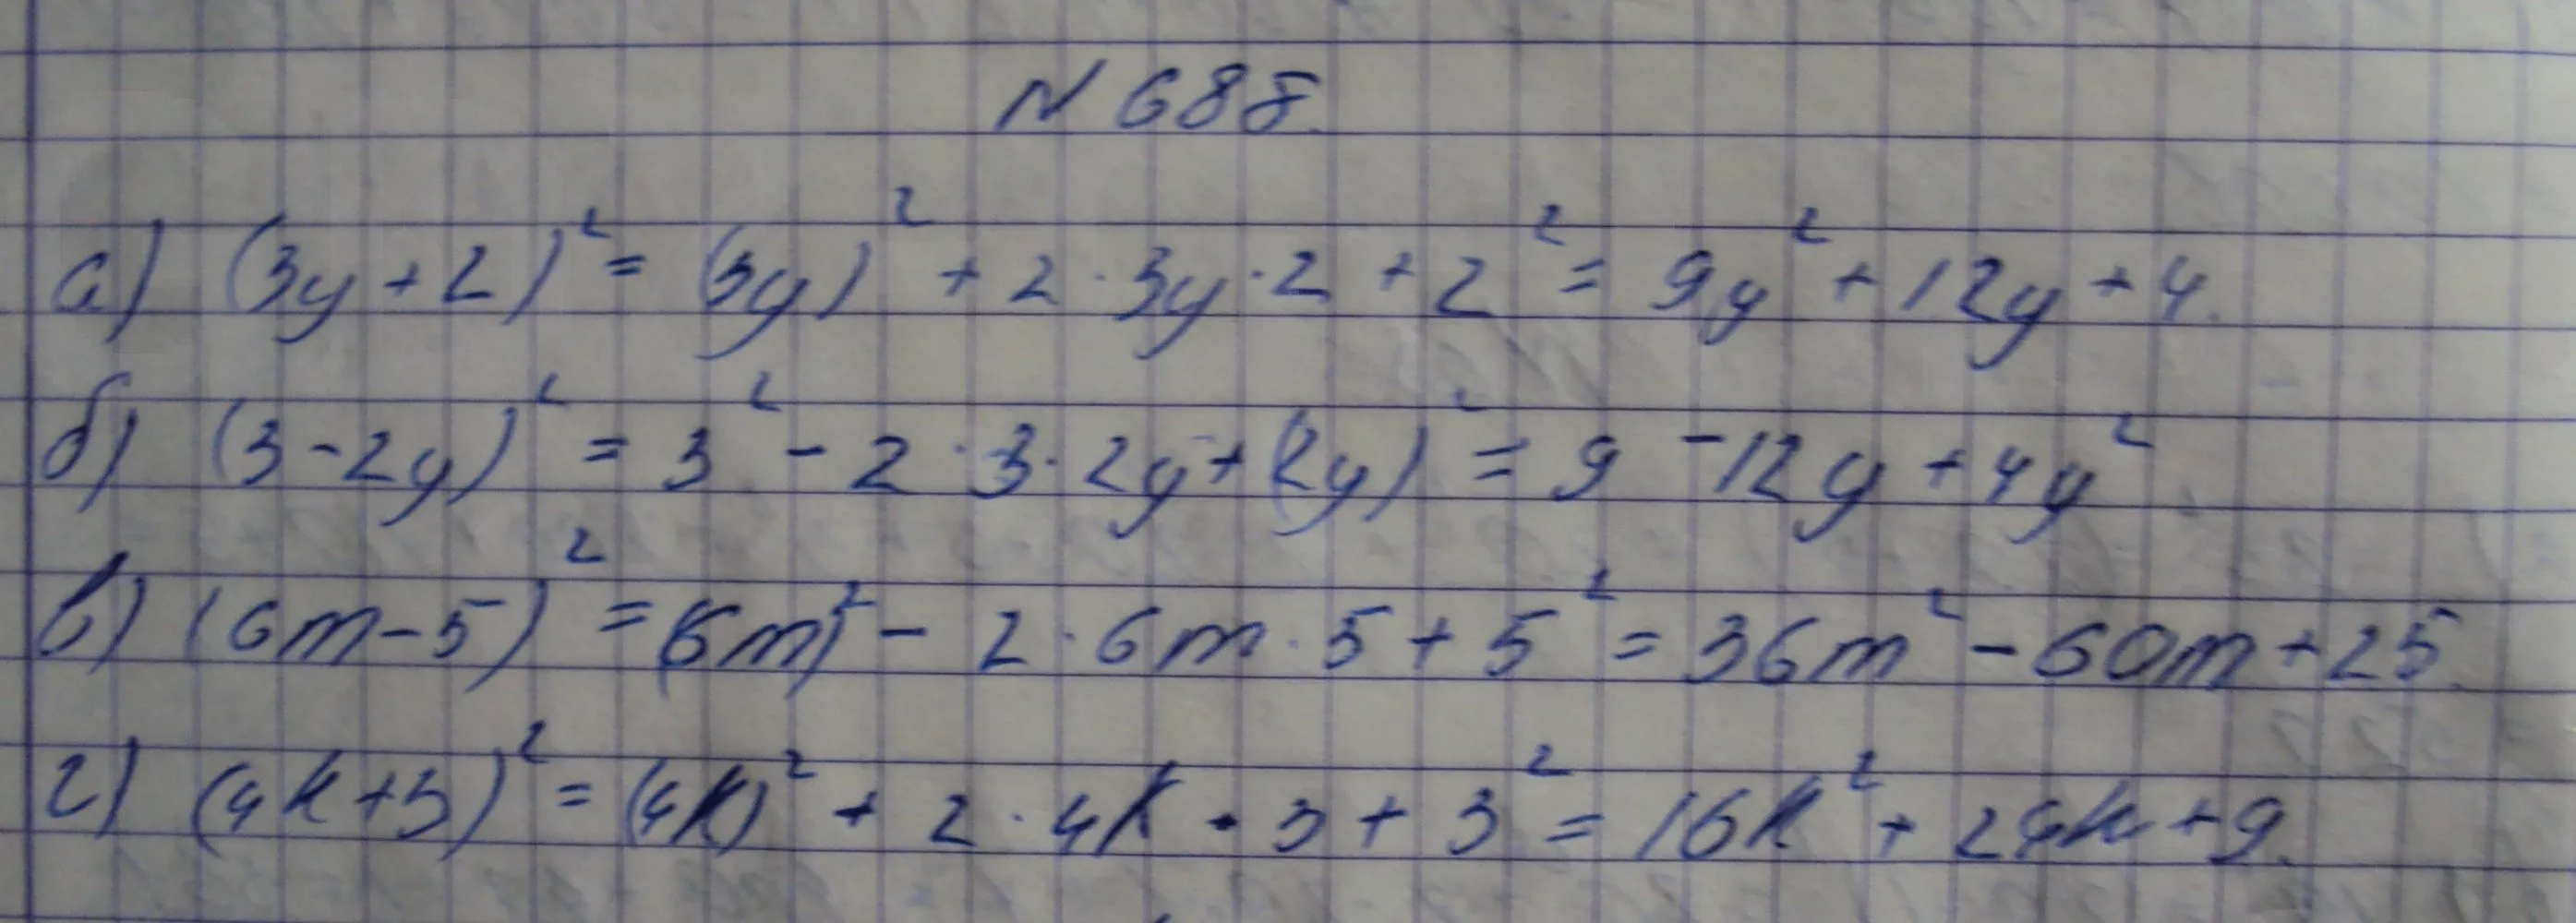 N 688.
а) (3y+2)² = (3y)² + 2 · 3y · 2 + 2² = 9y² + 12y + 4.
б) (3-2y)² = 3² - 2 · 3 · 2y + (2y)² = 9 - 12y + 4y²
в) (6m-5)² = (6m)² - 2 · 6m · 5 + 5² = 36m² - 60m + 25
г) (4k+3)² = (4k)² + 2 · 4k · 3 + 3² = 16k² + 24k + 9.